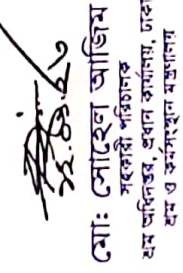 মো: সোহেল আজিম
সহকারী পরিচালক
শ্রম অধিদপ্তর, প্রধান কার্যালয়, ঢাকা
শ্রম ও কর্মসংস্থান মন্ত্রণালয়